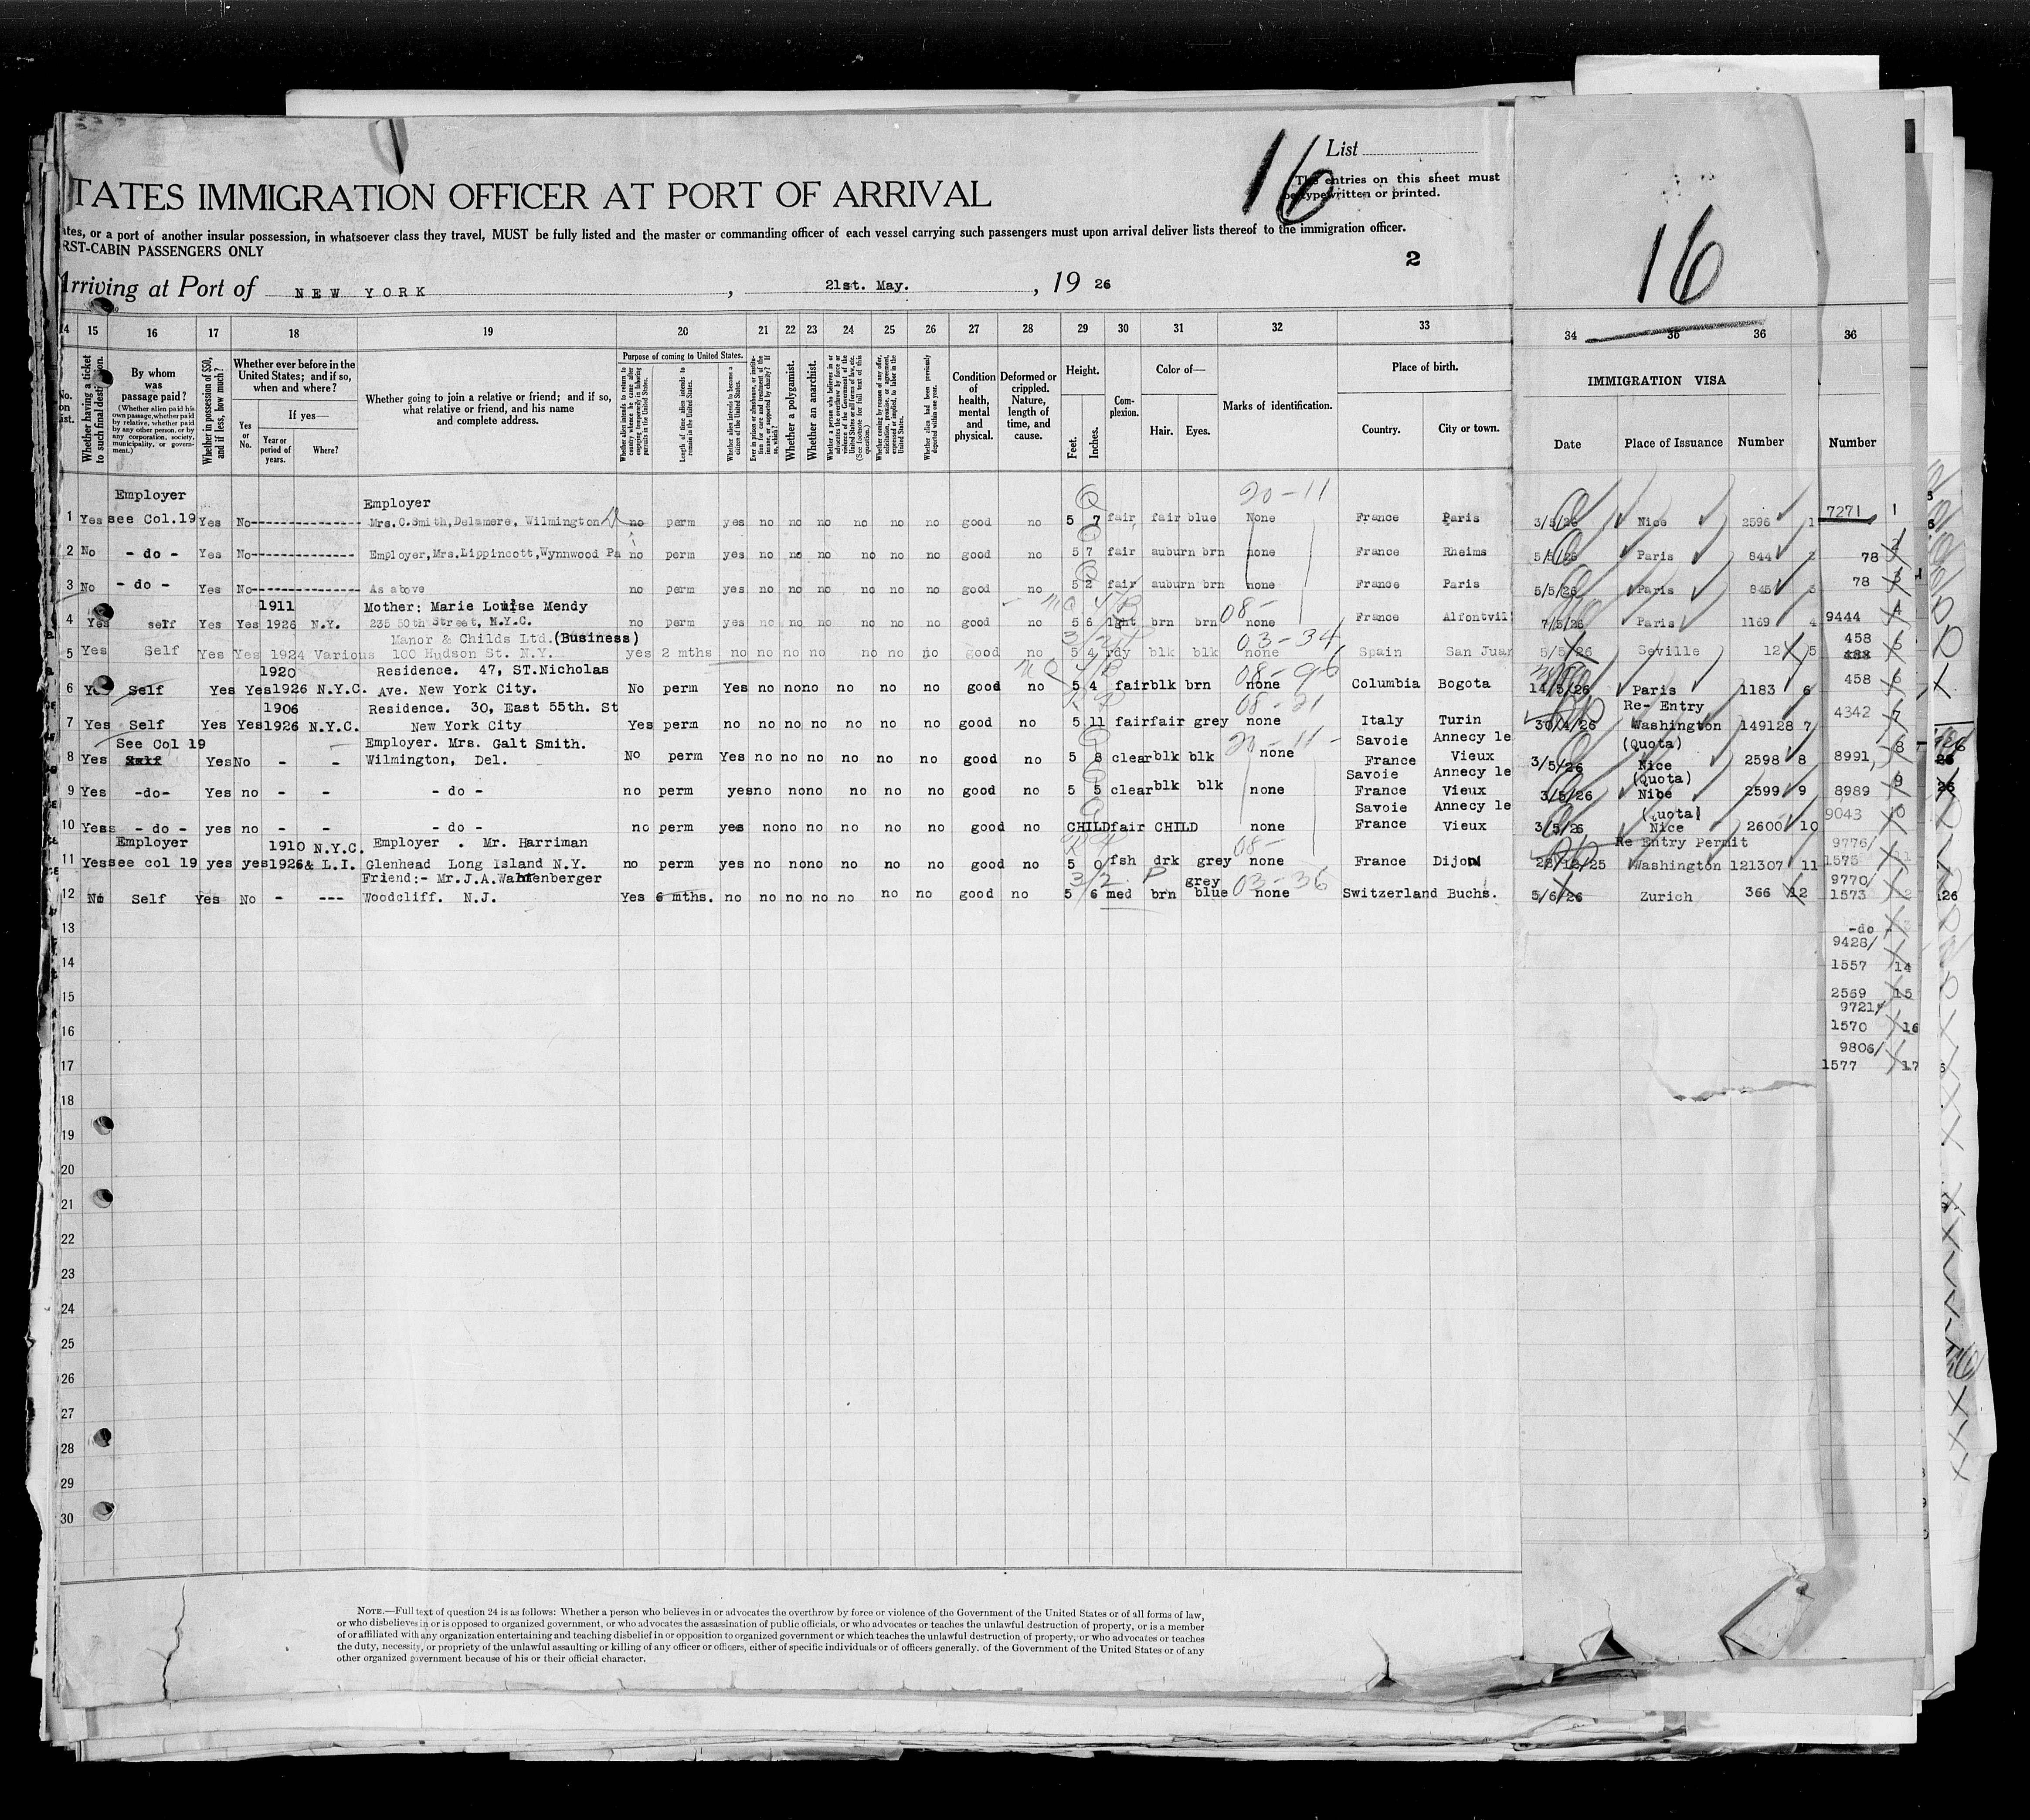 16
List
The entries on this sheet must
be typewritten or printed.
TATES IMMIGRATION OFFICER AT PORT OF ARRIVAL
ates, or a port of another insular possession, in whatsoever class they travel, MUST be fully listed and the master or commanding officer of each vessel carrying such passengers must upon arrival deliver lists thereof to the immigration officer.
RST-CABIN PASSENGERS ONLY
2
16
Arriving at Port of NEW YORK, 21st. May. , 19 26
14 15 16 17 18 19 20 21 22 23 24 25 26 27 28 29 30 31 32 33 34 35 36 36
No. on list.
Whether having a ticket to such final destination.
By whom was passage paid?
(Whether alien paid his own passage, whether paid by relative, whether paid by any other person, or by any corporation, society, municipality, or government.)
Whether in possession of $50, and if less, how much?
Whether ever before in the United States; and if so, when and where?
If yes—
Yes or No.
Year or period of years.
Where?
Whether going to join a relative or friend; and if so, what relative or friend, and his name and complete address.
Purpose of coming to United States.
Whether alien intends to return to country whence he came after engaging temporarily in laboring pursuits in the United States.
Length of time alien intends to remain in the United States.
Whether alien intends to become a citizen of the United States.
Ever in prison or almshouse, or institution for care and treatment of the insane, or supported by charity? If so, which?
Whether a polygamist.
Whether an anarchist.
Whether a person who believes in or advocates the overthrow by force or violence of the Government of the United States or all forms of law, etc. (See footnote for full text of this question.)
Whether coming by reason of any offer, solicitation, promise, or agreement, expressed or implied, to labor in the United States.
Whether alien had been previously deported within one year.
Condition of health, mental and physical.
Deformed or crippled. Nature, length of time, and cause.
Height.
Feet.
Inches.
Complexion.
Color of—
Hair.
Eyes.
Marks of identification.
Place of birth.
Country.
City or town.
IMMIGRATION VISA
Date
Place of Issuance
Number
Number
Employer Employer 20-11
1 Yes see Col.19 Yes No Mrs.C.Smith,Delamere, Wilmington no perm yes no no no no no no good no 5 7 fair fair blue None France Paris 3/5/26 Nice 2596 1 7271 1
2 No - do - Yes No Employer,Mrs.Lippincott,Wynnwood Pa no perm yes no no no no no no good no 5 7 fair auburn brn none France Rheims 5/5/26 Paris 844 2 78 2
3 No - do - Yes No As above no perm yes no no no no no no good no 5 2 fair auburn brn none France Paris 5/5/26 Paris 845 3 78 3
1911 Mother: Marie Louise Mendy 08-
4 Yes self Yes Yes 1926 N.Y. 235 50th Street, N.Y.C. no perm yes no no no no no no good no 5 6 lght brn brn none France Alfontvil 7/5/26 Paris 1169 4 9444 4
Manor & Childs Ltd.(Business) 3/2 03-34 458
5 Yes Self Yes Yes 1924 Various 100 Hudson St. N.Y. yes 2 mths no no no no no no no good no 5 4 rdy blk blk none Spain San Juan 5/5/26 Seville 12 5 5
1920 Residence. 47, ST.Nicholas 08-96
6 Yes Self Yes Yes 1926 N.Y.C. Ave. New York City. No perm Yes no no no no no no good no 5 4 fair blk brn none Columbia Bogota 14/5/26 Paris 1183 6 458 6
1906 Residence. 30, East 55th. St 08-21 Re-Entry
7 Yes Self Yes Yes 1926 N.Y.C. New York City Yes perm no no no no no no no good no 5 11 fair fair grey none Italy Turin 30/4/26 Washington 149128 7 4342 7
See Col 19 Employer. Mrs. Galt Smith. 20-11- Savoie Annecy le (Quota)
8 Yes Self Yes No - - Wilmington, Del. No perm Yes no no no no no no good no 5 8 clear blk blk none France Vieux 3/5/26 Nice 2598 8 8991, 8
Savoie Annecy le (Quota)
9 Yes -do- Yes no - - - do - no perm yes no no no no no no good no 5 5 clear blk blk none France Vieux 3/5/26 Nice 2599 9 8989 9
Savoie Annecy le (Quota)
10 Yes - do - yes no - - - do - no perm yes no no no no no no good no CHILD fair CHILD none France Vieux 3/5/26 Nice 2600 10 9043 10
Employer 1910 N.Y.C. Employer . Mr. Harriman 08- Re Entry Permit 9776/
11 Yes see col 19 yes yes 1926 & L.I. Glenhead Long Island N.Y. no perm yes no no no no no no good no 5 0 fsh drk grey none France Dijon 28/12/25 Washington 121307 11 1575 11
Friend:- Mr.J.A.Wahlenberger 3/2 P grey 03-36 9770/
12 No Self Yes No - --- Woodcliff. N.J. Yes 6 mths. no no no no no no no good no 5 6 med brn blue none Switzerland Buchs. 5/6/26 Zurich 366 12 1573 12
13 -do- 13
9428/
14 1557 14
15 2569 15
9721/
16 1570 16
9806/
17 1577 17
18
19
20
21
22
23
24
25
26
27
28
29
30
NOTE.—Full text of question 24 is as follows: Whether a person who believes in or advocates the overthrow by force or violence of the Government of the United States or of all forms of law,
or who disbelieves in or is opposed to organized government, or who advocates the assassination of public officials, or who advocates or teaches the unlawful destruction of property, or is a member
of or affiliated with any organization entertaining and teaching disbelief in or opposition to organized government or which teaches the unlawful destruction of property, or who advocates or teaches
the duty, necessity, or propriety of the unlawful assaulting or killing of any officer or officers, either of specific individuals or of officers generally, of the Government of the United States or of any
other organized government because of his or their official character.